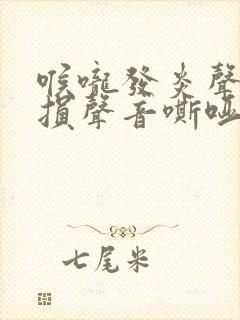 喉嚨發炎聲
損聲音嘶啞
七尾米